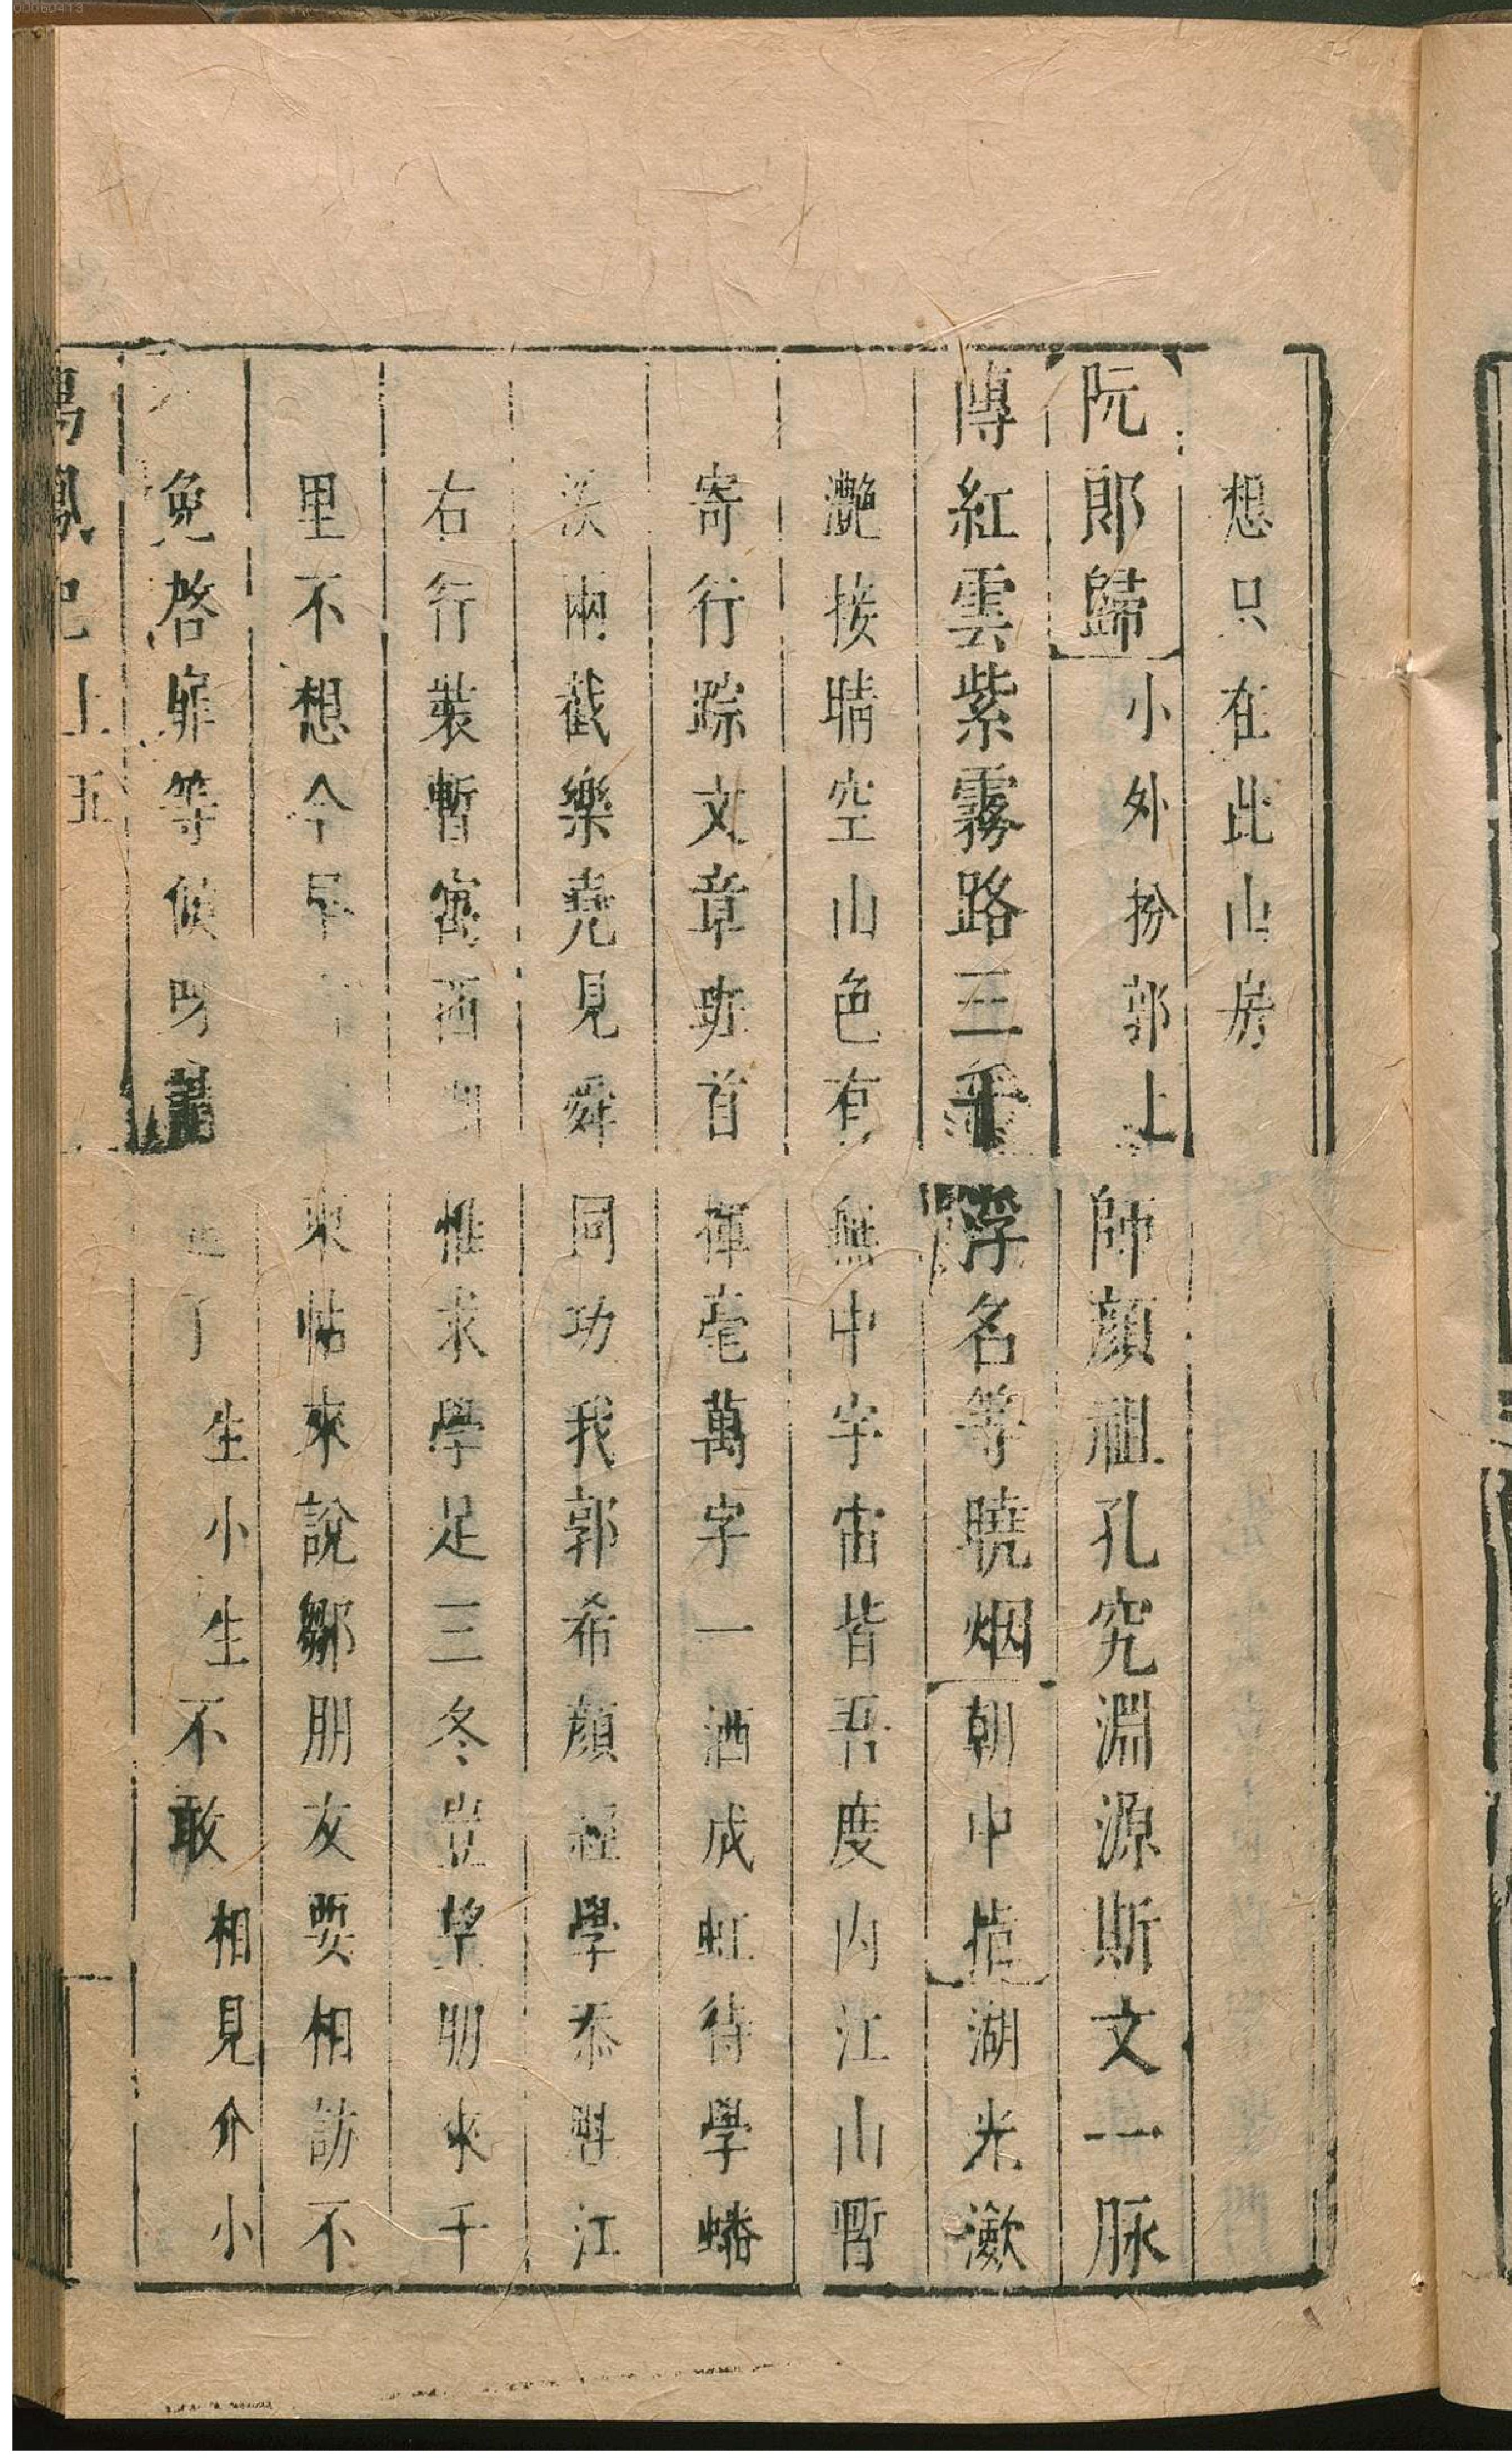 想只在此山房
阮郎歸 小外扮郭上 師顏祖孔究淵源斯文一脉
傳紅雲紫霧路三千浮名等曉烟 朝中措 湖光瀲
灧接晴空山色有無中宇宙皆吾度內江山暫
寄行踪文章班首揮毫萬字一酒成虹待學蟠
溪兩截樂堯見舜同功我郭希顏經學忝魁江
右行裝暫寓西湖惟求學足三冬豈望朋來千
里不想今早束帖來說鄒朋友要相訪不
免啓扉等候呀了生小生不敢相見介小
鳳 上 五
00060413